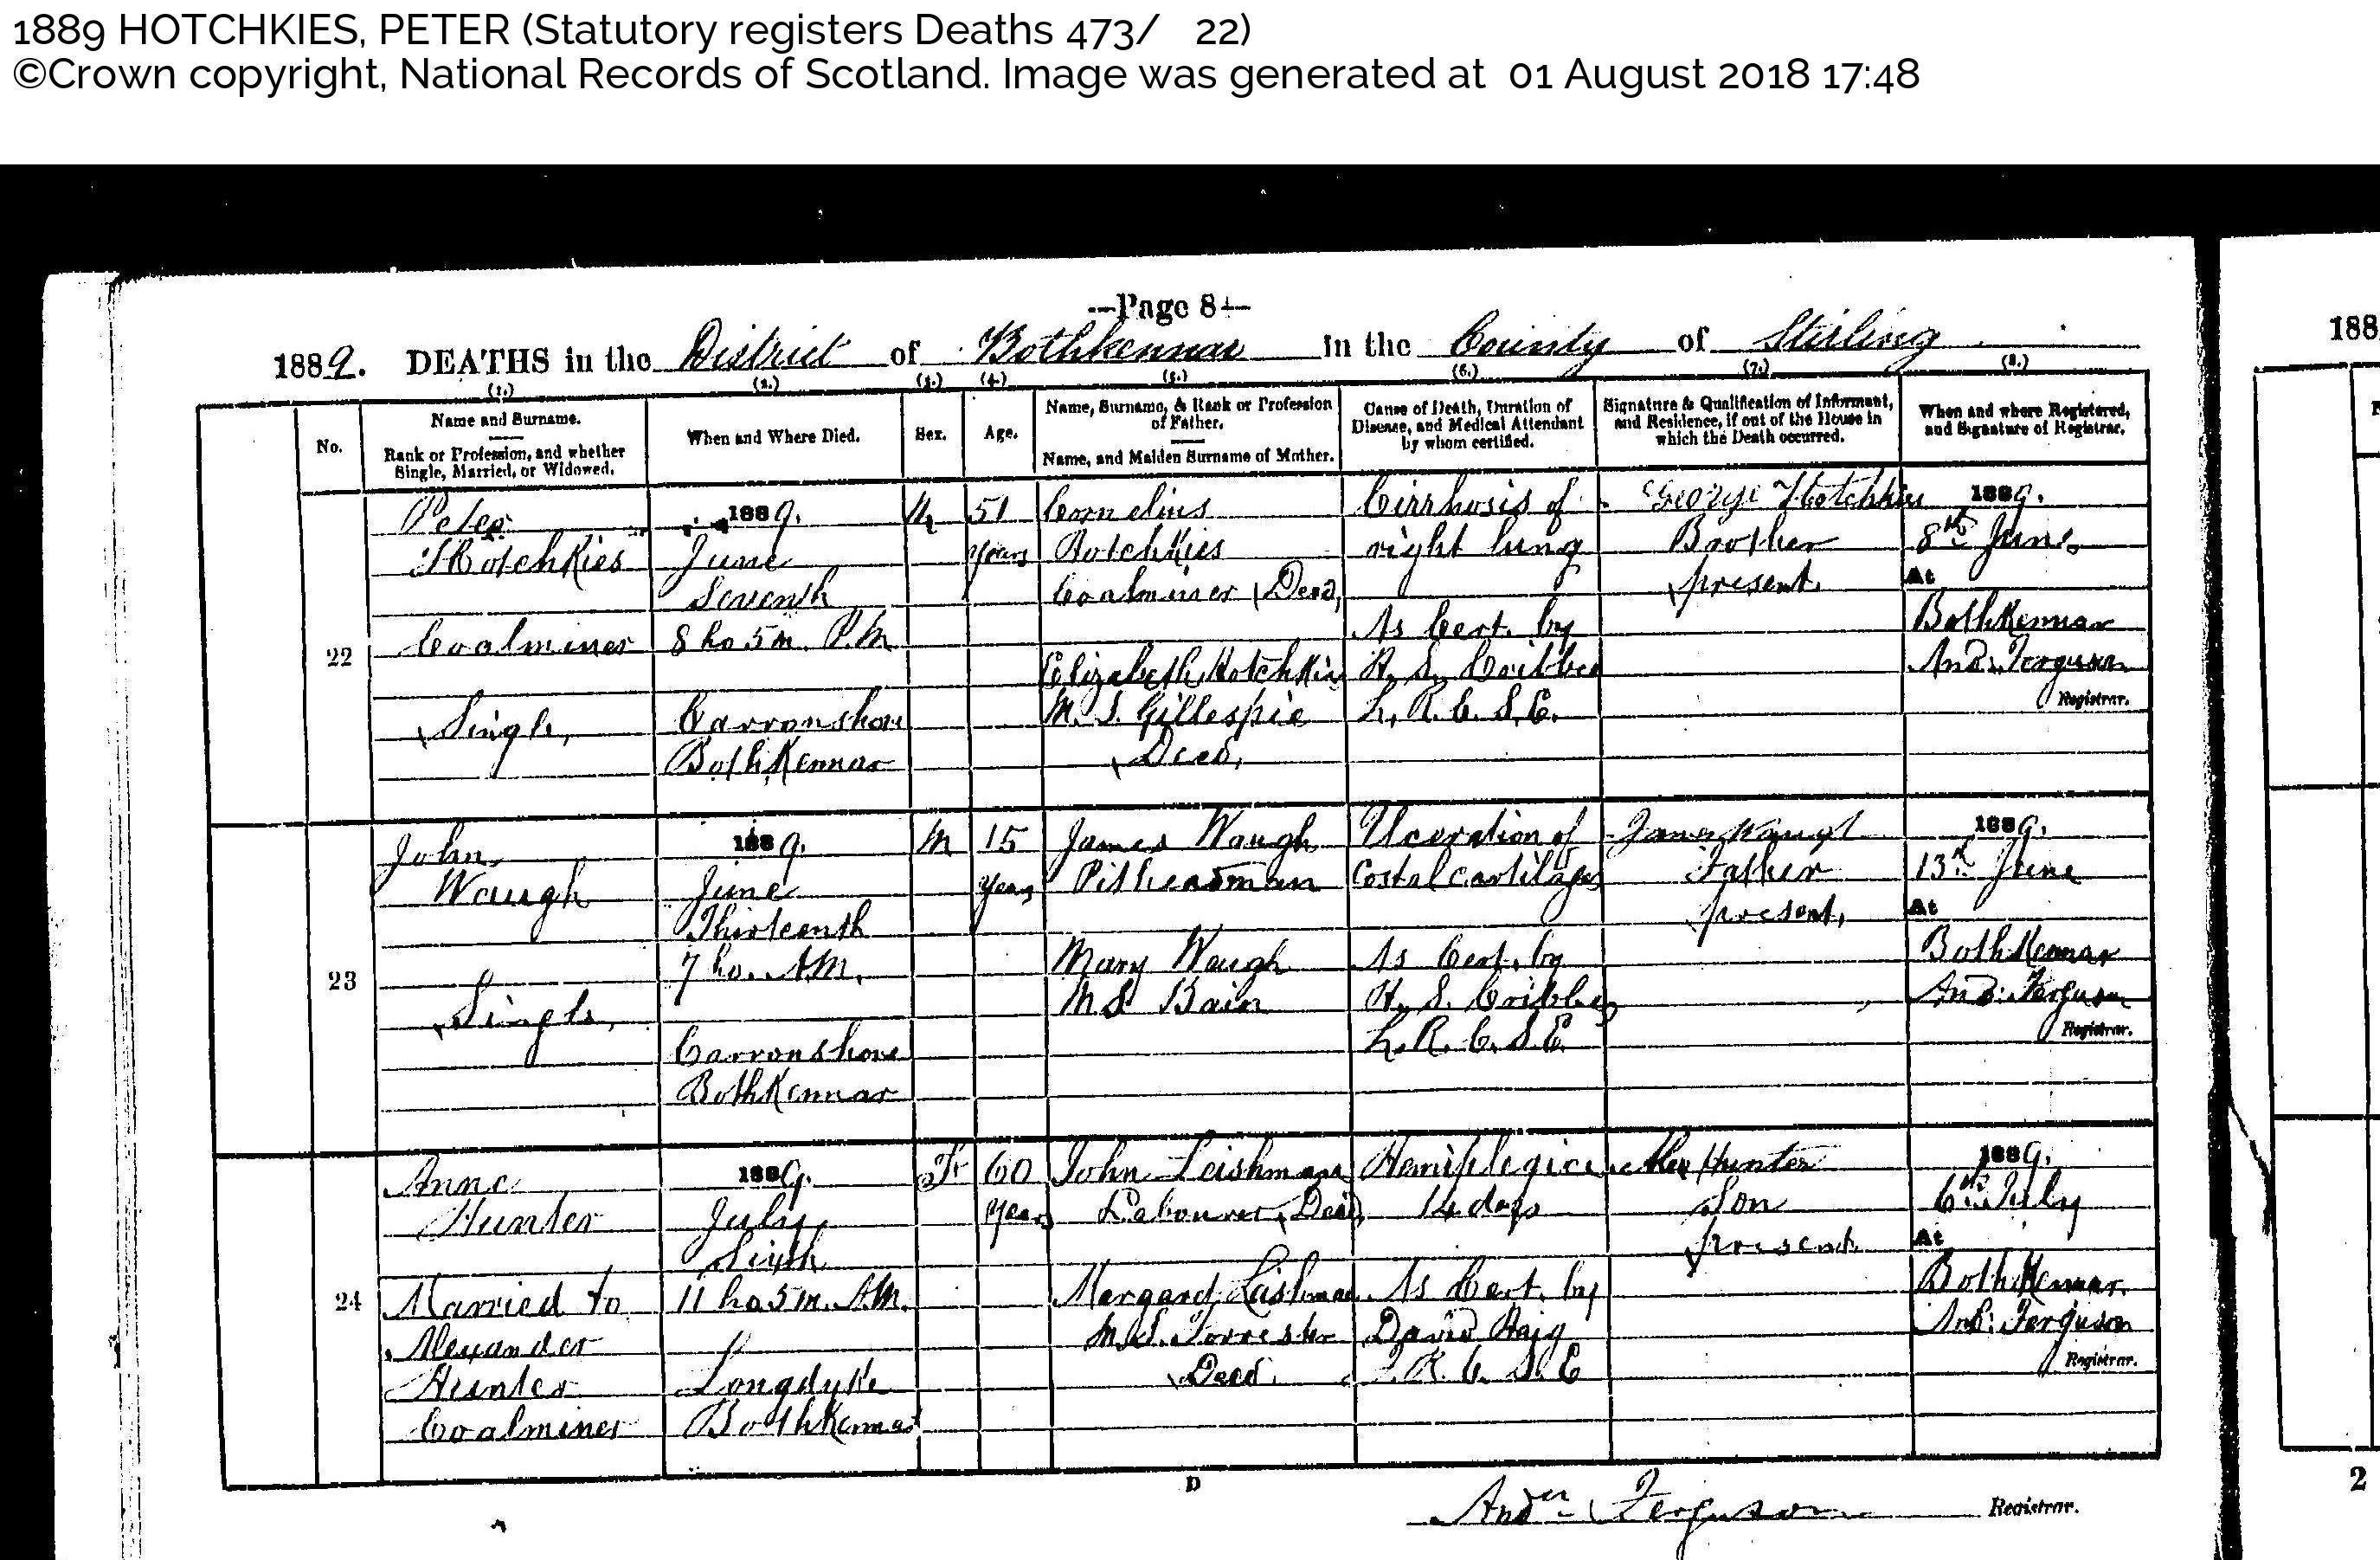 1889 HOTCHKIES, PETER (Statutory registers Deaths 473/ 22)
©Crown copyright, National Records of Scotland. Image was generated at 01 August 2018 17:48
—Page 8—
1889. DEATHS in the District of Bothkennar in the County of Stirling
188
(1.) (2.) (3.) (4.) (5.) (6.) (7.) (8.)
No.
Name and Surname.
Rank or Profession, and whether
Single, Married, or Widowed.
When and Where Died.
Sex.
Age.
Name, Surname, & Rank or Profession
of Father.
Name, and Maiden Surname of Mother.
Cause of Death, Duration of
Disease, and Medical Attendant
by whom certified.
Signature & Qualification of Informant,
and Residence, if out of the House in
which the Death occurred.
When and where Registered,
and Signature of Registrar.
22
Peter
Hotchkies
Coalminer
(Single)
1889.
June
Seventh
8 ho 5 m. P.M.
Carronshore
Bothkennar
M
51
years
Cornelius
Hotchkies
Coalminer (Decd)
Elizabeth Hotchkies
M. S. Gillespie
(Decd)
Cirrhosis of
right lung
As Cert. by
L. R. C. S. E.
George Hotchkies
Brother
(present)
1889.
8th June
At
Bothkennar
And: Ferguson
Registrar.
23
John
Waugh
(Single)
1889.
June
Thirteenth
7 ho. A.M.
Carronshore
Bothkennar
M
15
years
James Waugh
Pitheadman
Mary Waugh
M S Bain
Ulceration of
Costal Cartilages
As Cert. by
L. R. C. S. E.
James Waugh
Father
(present)
1889.
13th June
At
Bothkennar
And: Ferguson
Registrar.
24
Anne
Hunter
Married to
Alexander
Hunter
Coalminer
1889.
July
Sixth
11 ho 5 m. A.M.
Longdyke
Bothkennar
F
60
years
John Leishman
Labourer (Decd)
Margaret Leishman
M.S. Forrester
(Decd)
Hemiplegia
14 days
As Cert. by
David Haig
L. R. C. S. E
Alex Hunter
Son
(present)
1889.
6th July
At
Bothkennar
And: Ferguson
Registrar.
D
Andw Ferguson Registrar.
2